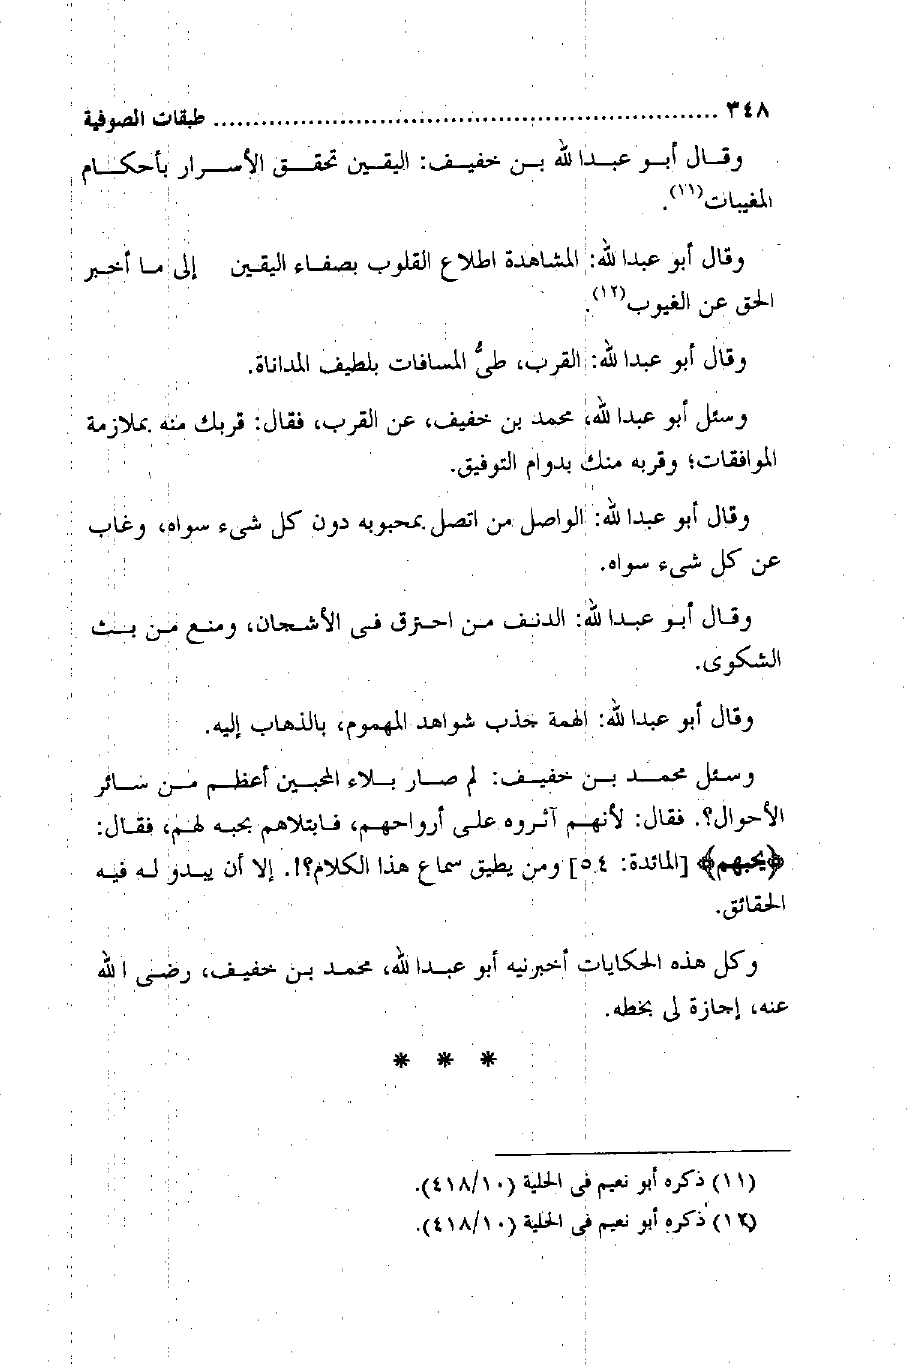 ٣٤٨ ........................................................ طبقات الصوفية
وقال أبو عبدالله بن خفيف: اليقين تحقق الأسرار بأحكام
المغيبات(١١).
وقال أبو عبدالله: المشاهدة اطلاع القلوب بصفاء اليقين إلى ما أخبر
الحق عن الغيوب(١٢).
وقال أبو عبدالله: القرب، طىُّ المسافات بلطيف المداناة.
وسئل أبو عبدالله، محمد بن خفيف، عن القرب، فقال: قربك منه بملازمة
الموافقات؛ وقربه منك بدوام التوفيق.
وقال أبو عبدالله: الواصل من اتصل بمحبوبه دون كل شىء سواه، وغاب
عن كل شىء سواه.
وقال أبو عبدالله: الدنف من احترق فى الأشجان، ومنع من بث
الشكوى.
وقال أبو عبدالله: الهمة جذب شواهد المهموم، بالذهاب إليه.
وسئل محمد بن خفيف: لم صار بلاء المحبين أعظم من سائر
الأحوال؟. فقال: لأنهم آثروه على أرواحهم، فابتلاهم بحبه لهم، فقال:
﴿يحبهم﴾ [المائدة: ٥٤] ومن يطيق سماع هذا الكلام؟!. إلا أن يبدو له فيه
الحقائق.
وكل هذه الحكايات أخبرنيه أبو عبدالله، محمد بن خفيف، رضى الله
عنه، إجازة لى بخطه.
* * *
(١١) ذكره أبو نعيم فى الحلية (٤١٨/١٠).
(١٢) ذكره أبو نعيم فى الحلية (٤١٨/١٠).